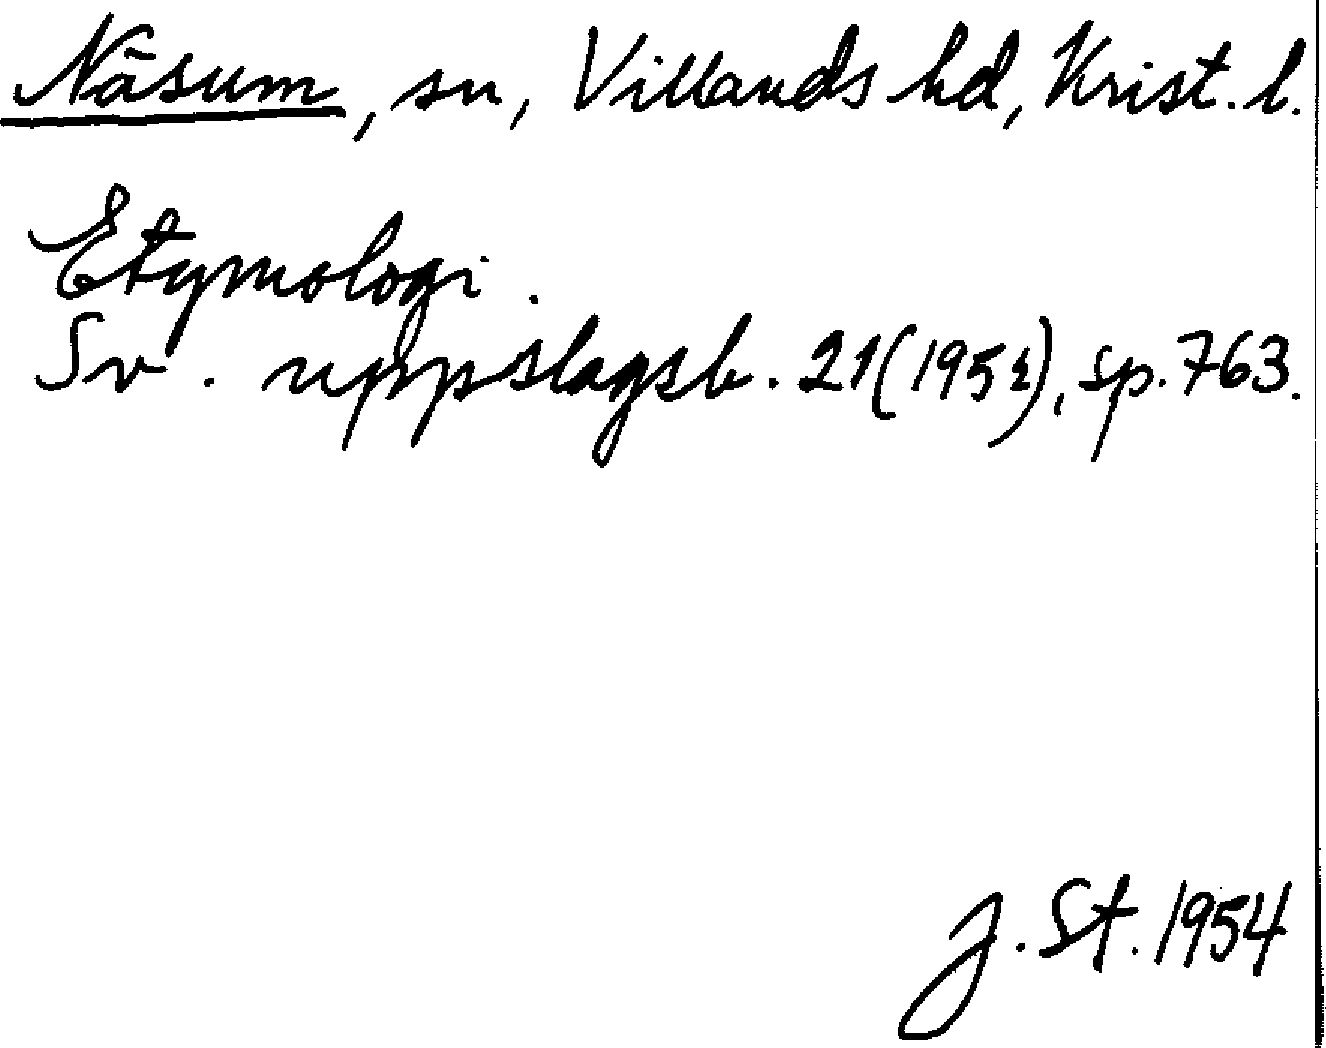 Näsum, sn, Villands hd, Krist. l.
Etymologi.
Sv. uppslagsb. 21 (1952), sp. 763.
J. St. 1954